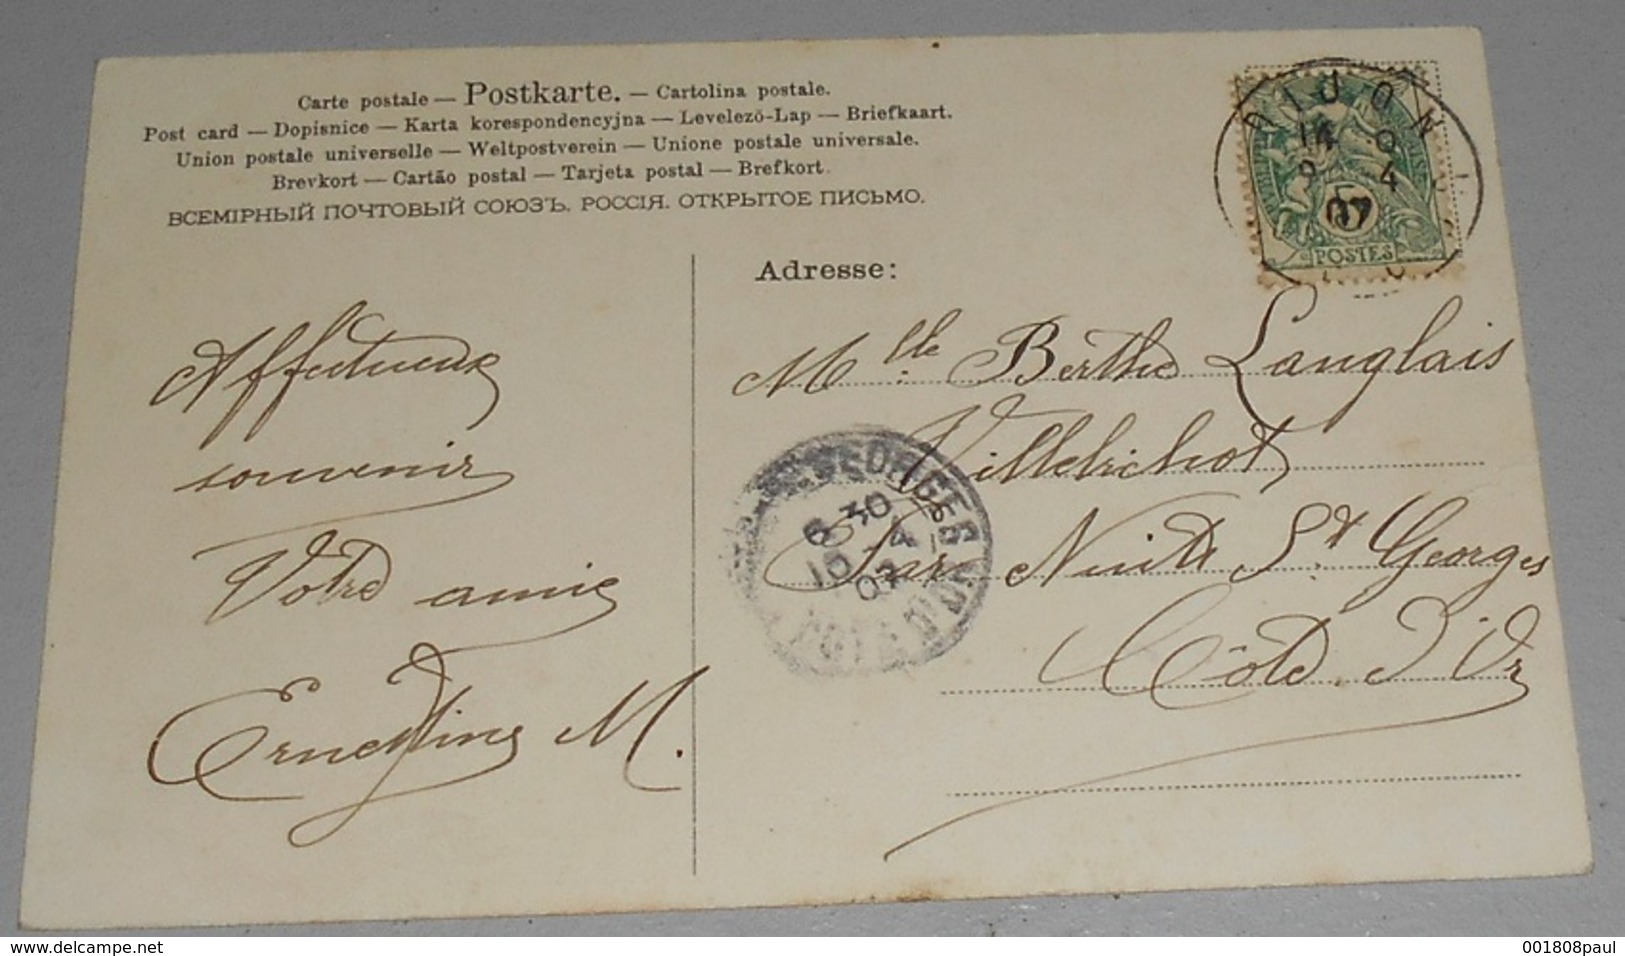 Carte postale — Postkarte. — Cartolina postale.
Post card — Dopisnice — Karta korespondencyjna — Levelező-Lap — Briefkaart.
Union postale universelle — Weltpostverein — Unione postale universale.
Brevkort — Cartão postal — Tarjeta postal — Brefkort.
ВСЕМІРНЫЙ ПОЧТОВЫЙ СОЮЗЪ. РОССІЯ. ОТКРЫТОЕ ПИСЬМО.
DIJON
14 0
9 4
07
POSTES
Adresse:
Affectueux
souvenir
Votre amie
Ernestine M.
Mlle Berthe Langlais
Villebichot
Par Nuits St Georges
Côte d'Or
GEORGES
6 30
10 - 4
07
COTE D'OR
www.delcampe.net
001808paul